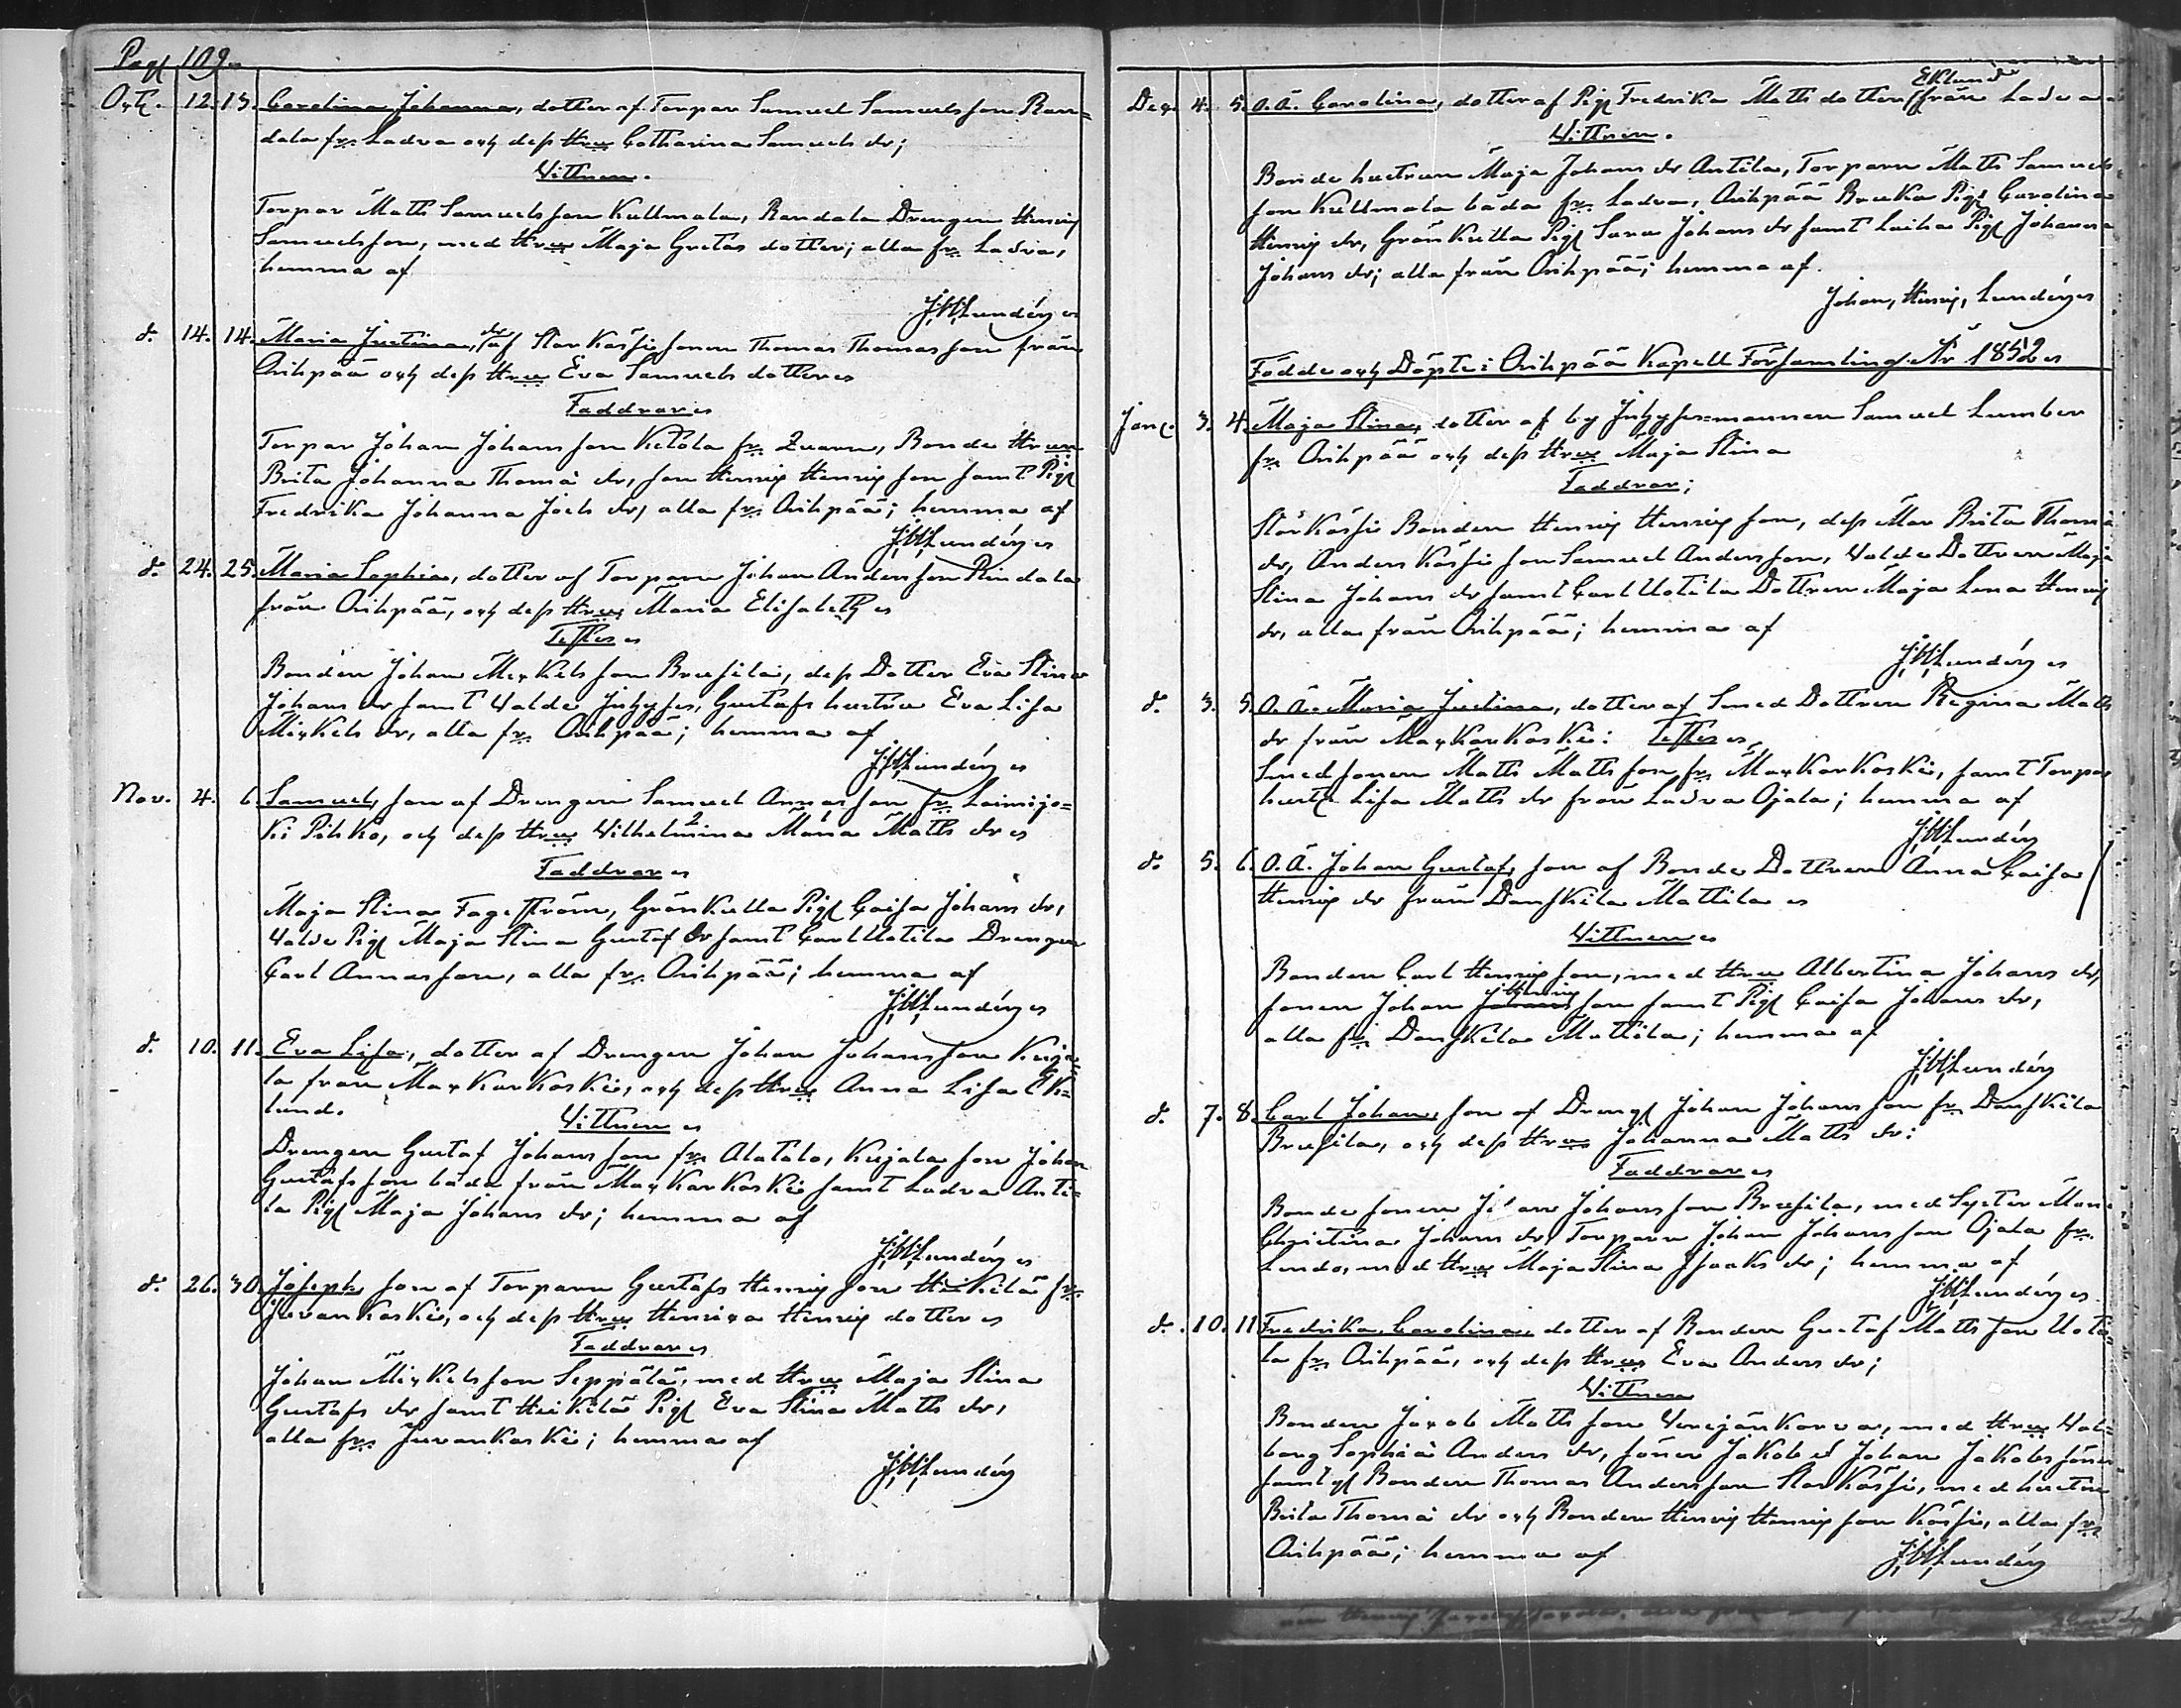 Pag. 109.
Oct. 12. 13. Carolina Johanna, dotter af Torpar Samuel Samuelsson Ran=
dala fr. Ladva och dess Hru Catharina Samuels dr;
Vittnen.
Torpar Matts Samuelsson Kullmala, Randala Drengen Henric
Samuelsson, med Hru Maja Gretas dotter; alla fr. Ladva,
hemma af
J. H. Lundén
d. 14. 14. Maria Justina, dr af Storkåssi sonen Thomas Thomasson från
Oripää och dess Hru Eva Samuels dotter
Faddrar
Torpar Johan Johansson Ketola fr. , Bonde Hrun
Brita Johanna Thomæ dr, son Henric Henricson samt Pig.
Fredrika Johanna Joels dr, alla fr. Oripää; hemma af
J. H. Lundén
d. 24. 25. Maria Sophia, dotter af Torparn Johan Andersson Rindala
från Oripää, och dess Hru Maria Elisabeth
Testes
Bonden Johan Mickelsson Brusila, dess Dotter Eva Stina
Johans dr samt Walde Inhyses, Gustafs hustru Eva Lisa
Mickels dr, alla fr. Oripää; hemma af
J. H. Lundén
Nov. 4. 6. Samuel, son af Drengen Samuel Annasson fr. Loimijo=
ki Pihko, och dess Hru Wilhelmina Maria Matts dr
Faddrar
Maja Stina Fageström, Grönkulla Pig. Caisa Johans dr,
Walde Pig. Maja Stina Gustaf dr samt Carl Uotila Drengen
Carl Annasson, alla fr. Oripää; hemma af
J. H. Lundén
d. 10. 11. Eva Lisa, dotter af Drengen Johan Johansson Kuja=
la från Mackarkoski, och dess Hru Anna Lisa Ek=
lund.
Vittnen
Drengen Gustaf Johansson fr. Alatalo, Kujala son Johan
Gustafsson båda från Mackarkoski samt Ladva Anti=
la Pig. Maja Johans dr; hemma af
J. H. Lundén
d. 26. 30. Joseph, son af Torparn Gustafs Henricson Heikilä fr.
Juvankoski, och dess Hru Henrica Henric dotter
Faddrar
Johan Mickelsson Seppälä, med Hru Maja Stina
Gustafs dr samt Heikilä Pig. Eva Stina Matts dr,
alla fr. Juvankoski; hemma af
J. H. Lundén
Eklund
Dec. 4. 5. O. Ä. Carolina, dotter af Pig. Fredrika Matts dotter från Ladva
Vittnen.
Bonde hustrun Maja Johans dr Antila, Torparn Matts Samuels
son Kullmala båda fr. Ladva, Oripää Bruka Pig. Carolina
Henric dr, Grönkulla Pig. Sara Johans dr samt Laiha Pig. Johanna
Johans dr; alla från Oripää; hemma af.
Johan, Henric, Lundén
Födde och Döpte i Oripää Kapell Församling År 1852
Janr. 3. 4. Maja Stina, dotter af by Inhyses-mannen Samuel Lumber
fr. Oripää och dess Hru Maja Stina
Faddrar;
Storkåssi Bonden Henric Henricson, dess Mor Brita Thomæ
dr, Anders Kåssi son Samuel Andersson, Walde Dottren Maja
Stina Johans dr samt Carl Uotila Dottren Maja Lena Henric
dr, alla från Oripää; hemma af
J. H. Lundén
d. 3. 5. O. Ä. Maria Justina, dotter af Smed Dottren Regina Matts
dr från Mackarkoski: Testes
Smed sonen Matts Mattsson fr. Mackarkoski, samt Torpar
hust. Lisa Matts dr från Ladva Ojala; hemma af
J. H. Lundén
d. 5. 6. O. Ä. Johan Gustaf, son af Bonde Dottren Anna Caisa
Henric dr från Danskila Mattila
Vittnen
Bonden Carl Henricson, med Hru Albertina Johans dr,
Henric
sonen Johan son samt Pig. Caisa Johans dr,
alla fr. Danskila Mattila; hemma af
J. H. Lundén
d. 7. 8. Carl Johan, son af Dreng. Johan Johansson fr. Danskila
Brusila, och dess Hru Johanna Matts dr:
Faddrar
Bonde sonen Johan Johansson Brusila, med Syster Mari
Christina Johans dr, Torparn Johan Johansson Ojala fr.
, med Hru Maja Stina Isaks dr; hemma af
J. H. Lundén
d. 10. 11. Fredrika Carolina, dotter af Bonden Gustaf Mattsson Uoti=
la fr. Oripää, och dess Hru Eva Anders dr;
Vittnen
Bonden Jacob Mattsson Verejänkorva, med Hru Wal=
borg Sophia Anders dr, söner Jakob & Johan Jakobs söner
samt gl. Bonden Thomas Andersson Storkåssi, med hustru
Brita Thomæ dr och Bonden Henric Henricson Kåssi, alla fr.
Oripää; hemma af
J. H. Lundén